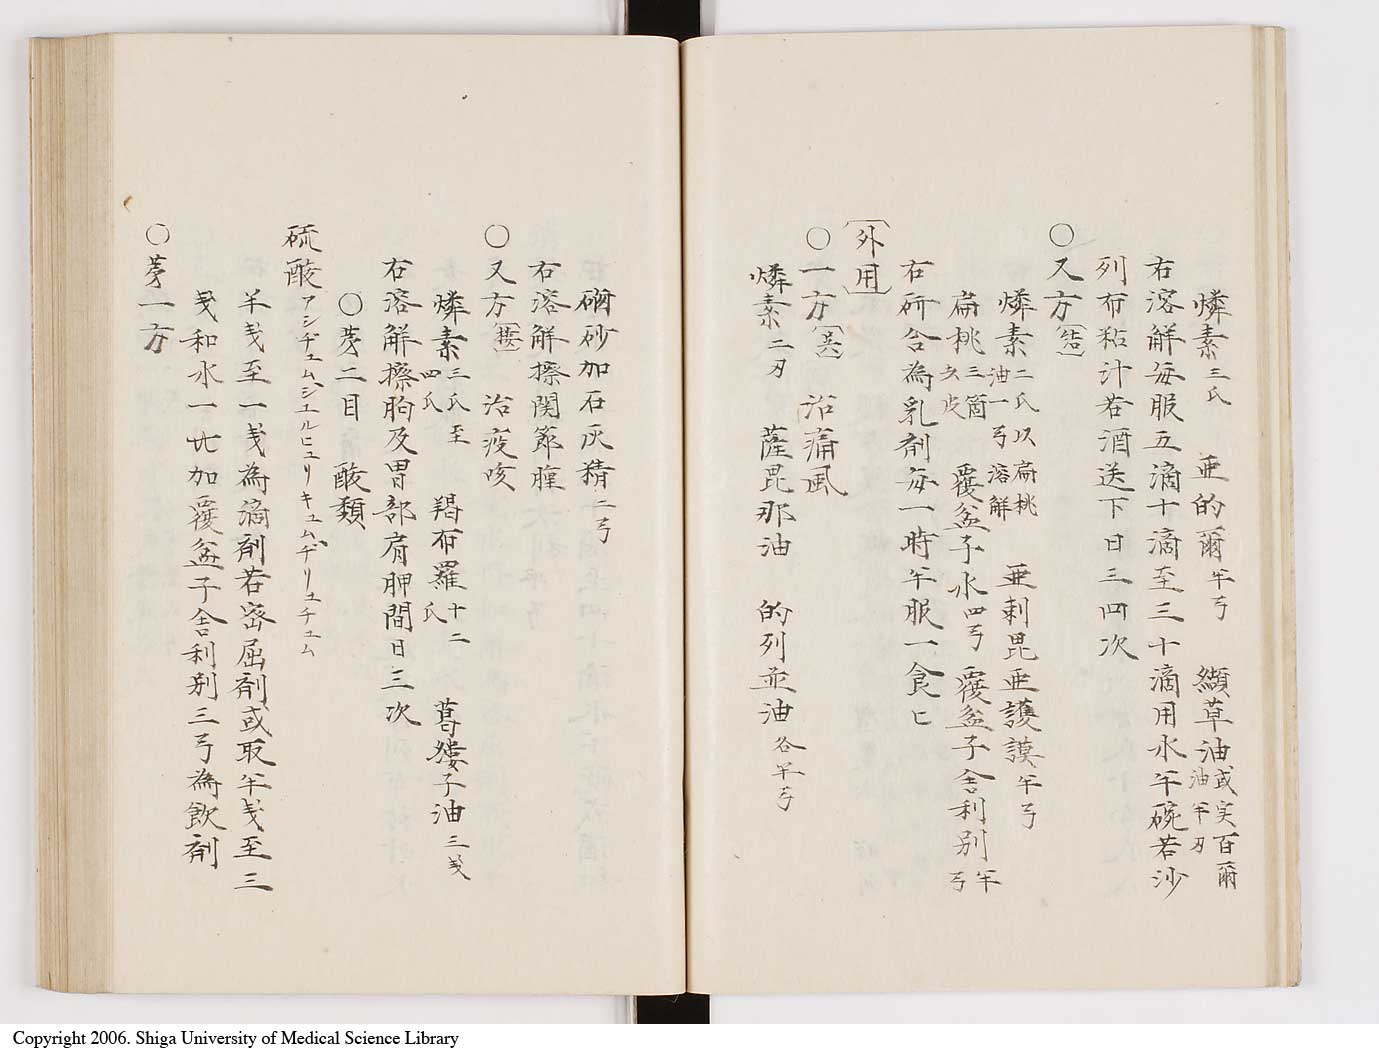 燐素三氏　亜的爾半弓　纈草油或実百爾油半刃
右溶解毎服五滴十滴至三十滴用水半碗若沙
列布粘汁若酒送下日三四次
○又方〔估〕
燐素二氏以扁桃油一弓溶解　亜剌毘亜護謨半弓
扁桃三箇去皮　覆盆子水四弓　覆盆子舎利別半弓
右研合為乳剤毎一時半服一食匕
〔外用〕
○一方　治痛風
燐素二刃　薩毘那油　的列並油各半弓
硇砂加石灰精二弓
右溶解擦関節腫
○又方　治疫咳
燐素三氏至四氏　羯布羅十二氏　蔞子油三戔
右溶解擦胸及胃部肩胛間日三次
○第二目　酸類
硫酸アシヂュム、ジュルヒュリキュム、ヂリュチュム
半戔至一戔為滴剤若密屈剤或取半戔至三
戔和水一㪶加覆盆子舎利別三弓為飲剤
○第一方
Copyright 2006. Shiga University of Medical Science Library